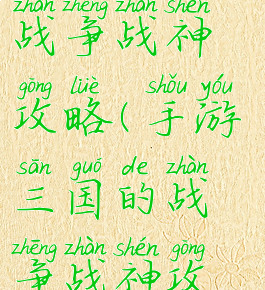 zhàn zhēng zhàn shén
战争战神
gōng lüè shǒu yóu
攻略(手游
sān guó de zhàn
三国的战
zhēng zhàn shén gōng
争战神攻